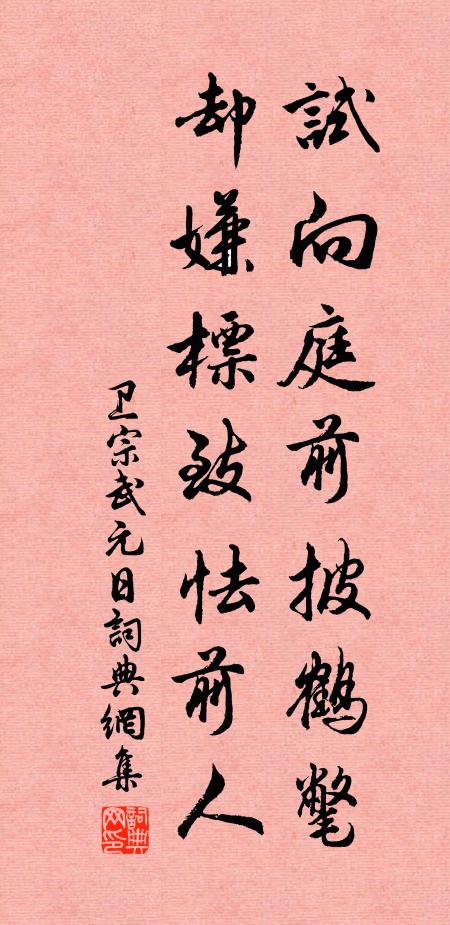 試向庭前披鶴氅
却嫌標致怯前人
卫宗武元日詞典網集
詞典网印